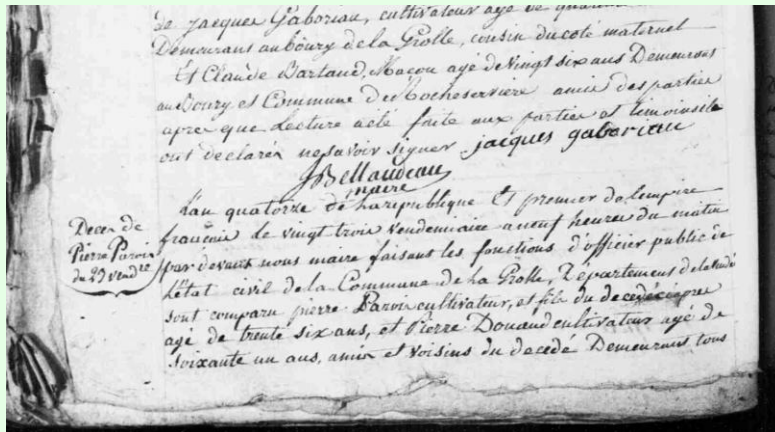 de jacques Gaboriau, cultivateur agé de quarante
Demeurans au boury de la Grolle, cousin du coté maternel
Et Claude Bartaud, Maçon agé de vingt six ans Demeurans
au Boury et Commune de Rocheserviere amie des partie
apre que Lecture a eté faite aux partie et temoins ils
ont declarés ne savoir signer jacques gaboriau
JBellaudeau
maire
Deces de
Pierre Parois
du 23 vendre
L'an quatorze de la republique Et premier de l'empire
françois le vingt trois vendemiaire a neuf heures du matin
par devant nous maire faisant les fonctions d'officier public de
L'Etat civil de la Commune de la Grolle, Departement de la Vendé
sont comparu pierre Parois cultivateur, et fils du decedé
agé de trente six ans, et Pierre Douaud cultivateur agé de
soixante un ans, amis et voisins du decedé Demeurans tous